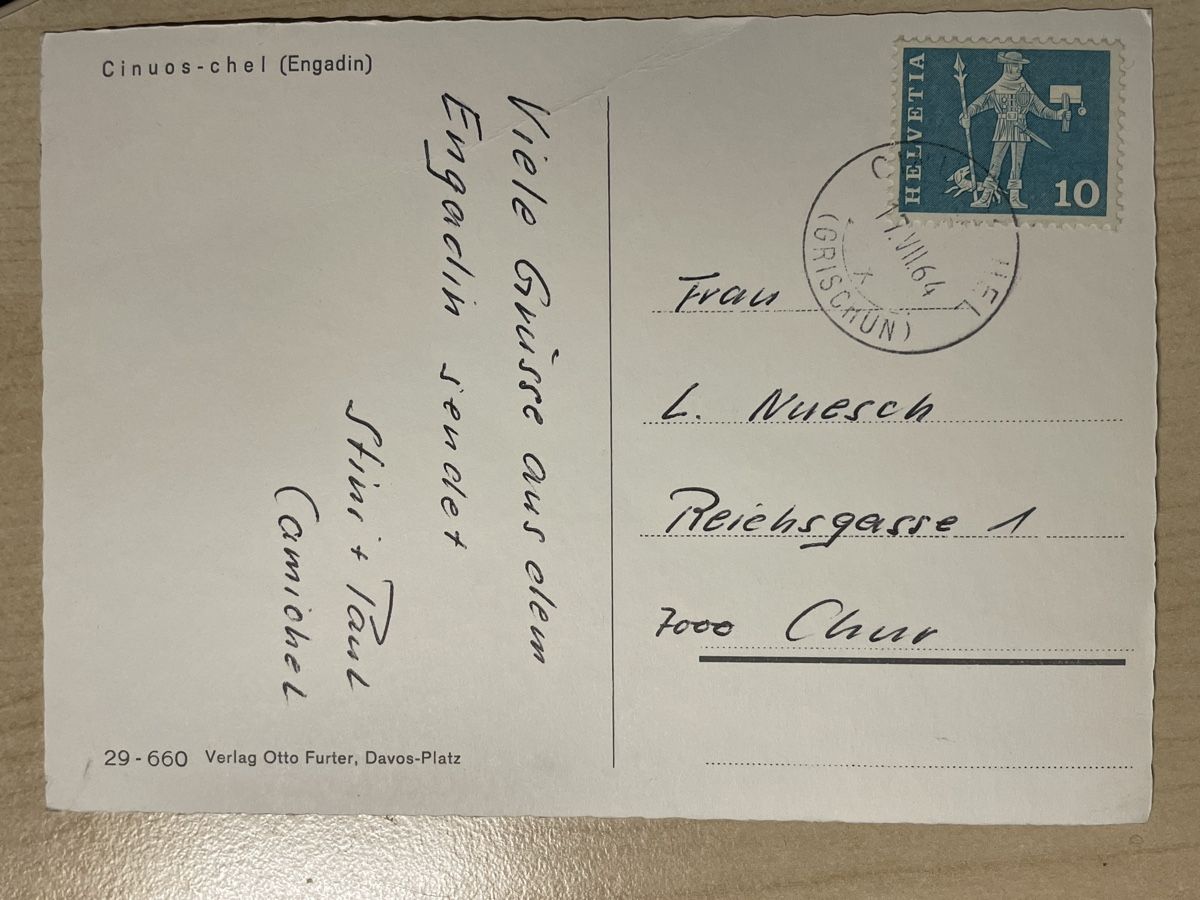 Cinuos-chel (Engadin)
Viele Grüsse aus dem
Engadin sendet
Stini + Paul
Camichel
29-660 Verlag Otto Furter, Davos-Platz
HELVETIA
10
VII.64
(GRISCHUN)
Frau
L. Nuesch
Reichsgasse 1
7000 Chur